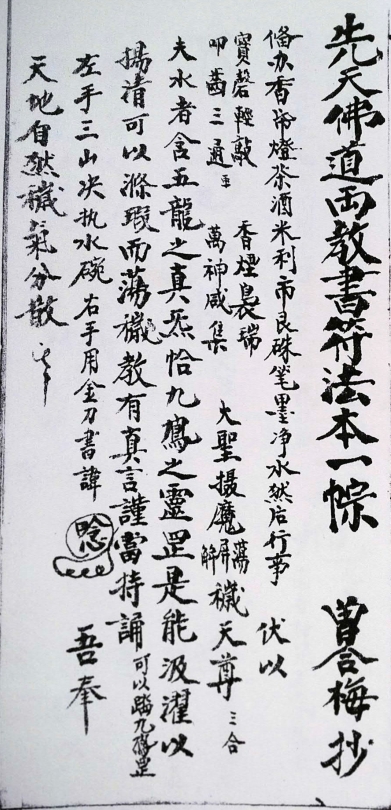 先天佛道两教書符法本一宗　曾合梅抄
俻办香帛燈茶酒米利市艮硃笔墨净水然后行事　伏以
寶磬輕敲　香煙裊瑞　大聖摄魔蕩穢天尊三合
叩齒三通　萬神咸集　解
夫水者含五龍之真炁恰九鳳之靈罡是能汲濯以
揚清可以滌瑕而蕩穢教有真言謹當持誦可以踏九鳳罡
左手三山决执水碗右手用金刀書諱　唸　吾奉
天地自然穢氣分散